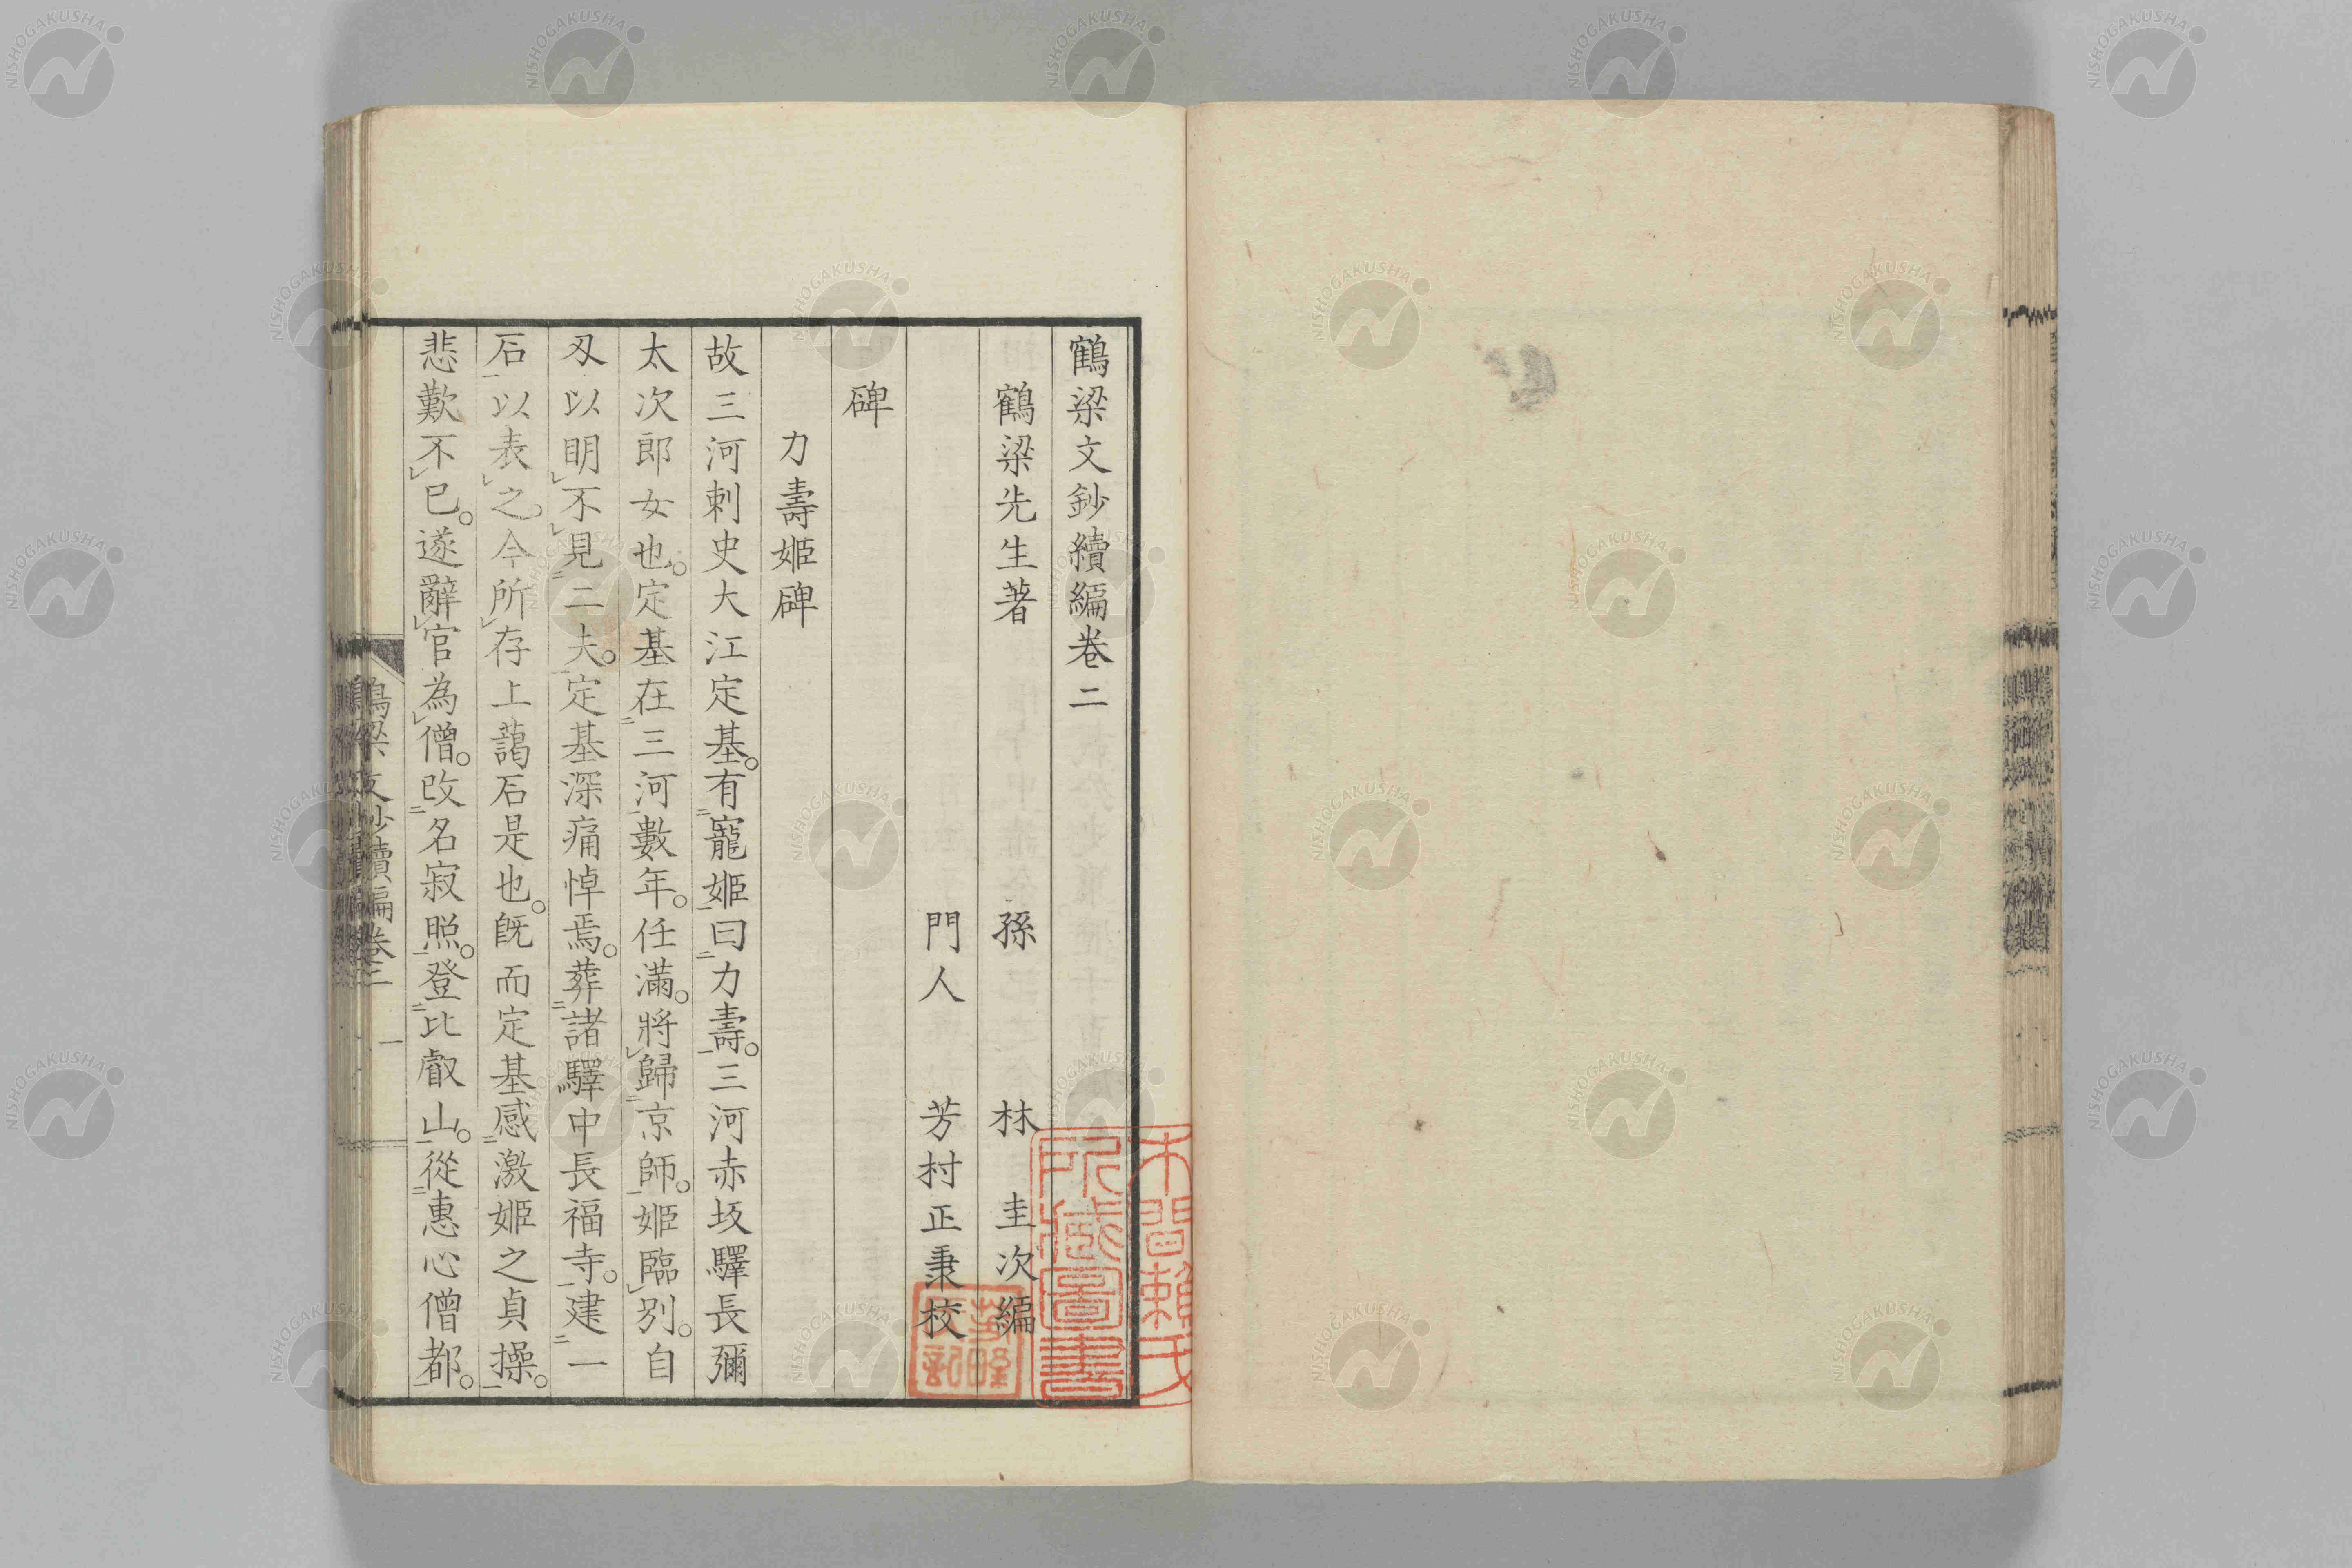 鶴梁文鈔續編卷二
鶴梁先生著 孫 林 圭次編
門人 芳村正秉校
碑
力壽姫碑
故三河刺史大江定基。有寵姫曰力壽。三河赤坂驛長彌
太次郎女也。定基在三河數年。任滿。將歸京師。姫臨別。自
刄以明不見二夫。定基深痛悼焉。葬諸驛中長福寺。建一
石以表之。今所存上藹石是也。既而定基感激姫之貞操。
悲歎不已。遂辭官為僧。改名寂照。登比叡山。從惠心僧都。
鶴梁文鈔續編卷二
一
木間賴氏
所藏圖書
NISHOGAKUSHA